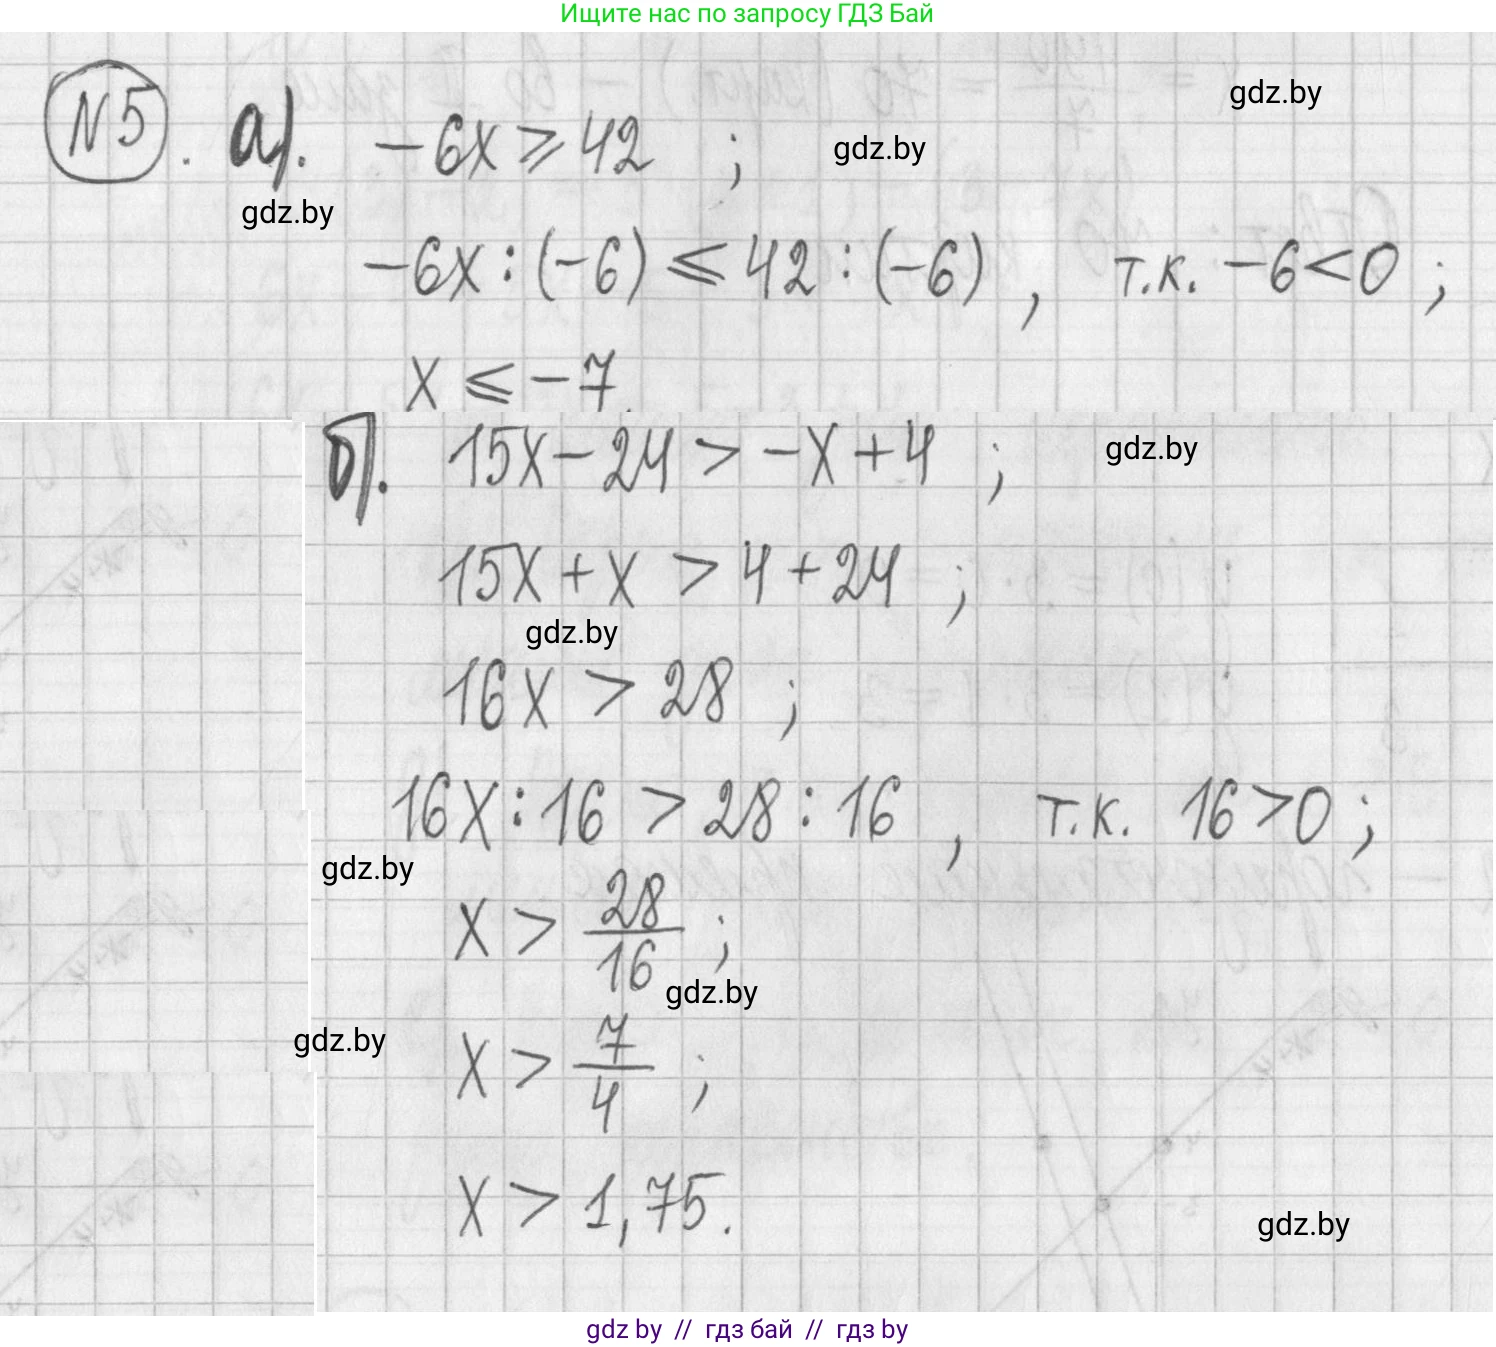 Ищите нас по запросу ГДЗ Бай
gdz.by
№5. а). -6x ⩾ 42 ;
gdz.by
gdz.by
-6x : (-6) ⩽ 42 : (-6) , т.к. -6 < 0 ;
x ⩽ -7.
б). 15x - 24 > -x + 4 ;
gdz.by
15x + x > 4 + 24 ;
gdz.by
16x > 28 ;
16x : 16 > 28 : 16 , т.к. 16 > 0 ;
gdz.by
x > 28/16 ;
gdz.by
gdz.by
x > 7/4 ;
x > 1,75.
gdz.by
gdz by // гдз бай // гдз by